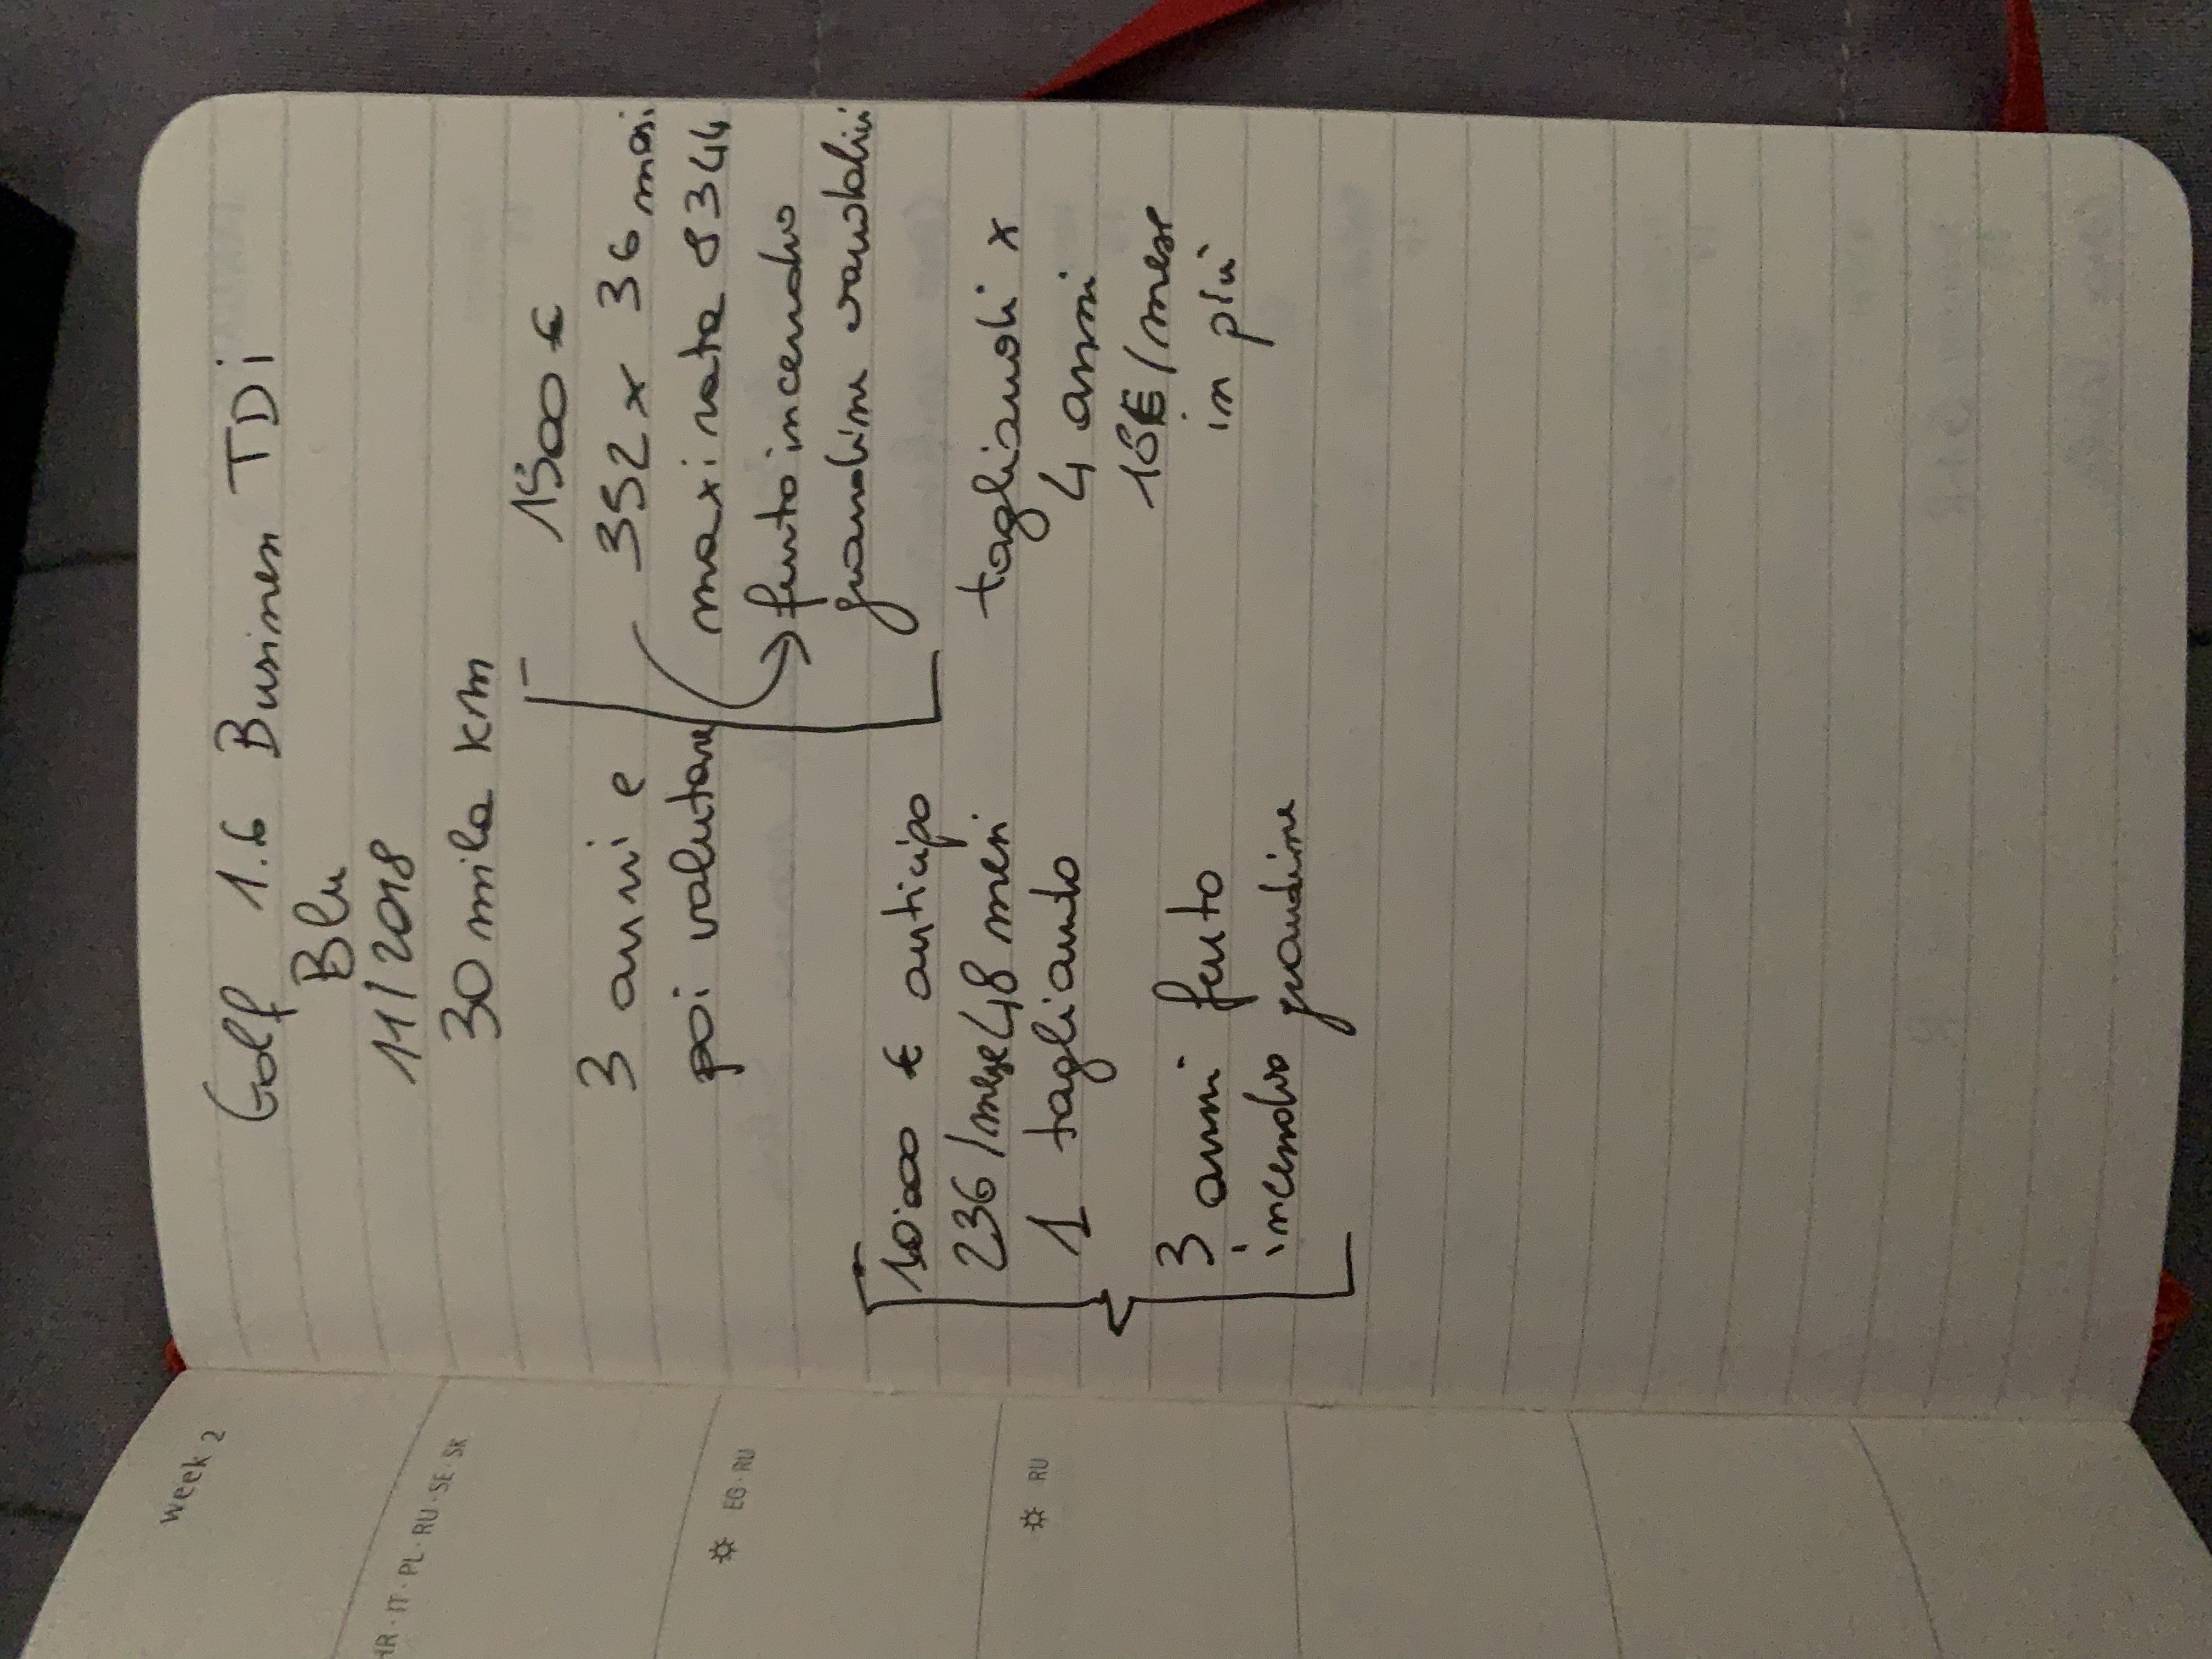 Golf 1.6 Business TDi
Blu
11/2018
30 mila km
3 anni e
poi valutare
1500 €
352 x 36 mesi
maxi rata 8344
furto incendio
grandine vandalici
10'000 € anticipo
236/mese 48 mesi
1 tagliando
3 anni furto
incendio grandine
tagliandi x
4 anni
16€/mese
in più
week 2
HR · IT · PL · RU · SE · SK
EG · RU
RU